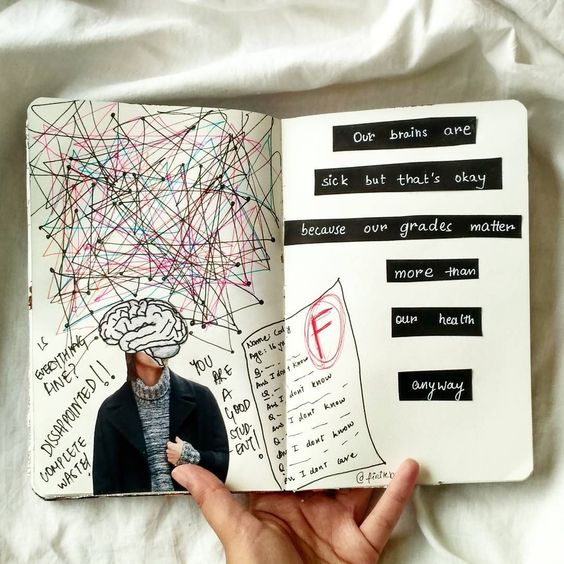 IS
EVERYTHING
FINE?
DISSAPOINTED!!
COMPLETE
WASTE!
YOU
ARE
A
GOOD
STUD-
ENT!
Name:
Age: 16
F
Q-
Ans I don't know
Q-
Ans I dont know
Q-
Ans I dont know
Q-
Ans I dont know
Q-
Ans I dont care
Our brains are
sick but that's okay
because our grades matter
more than
our health
anyway